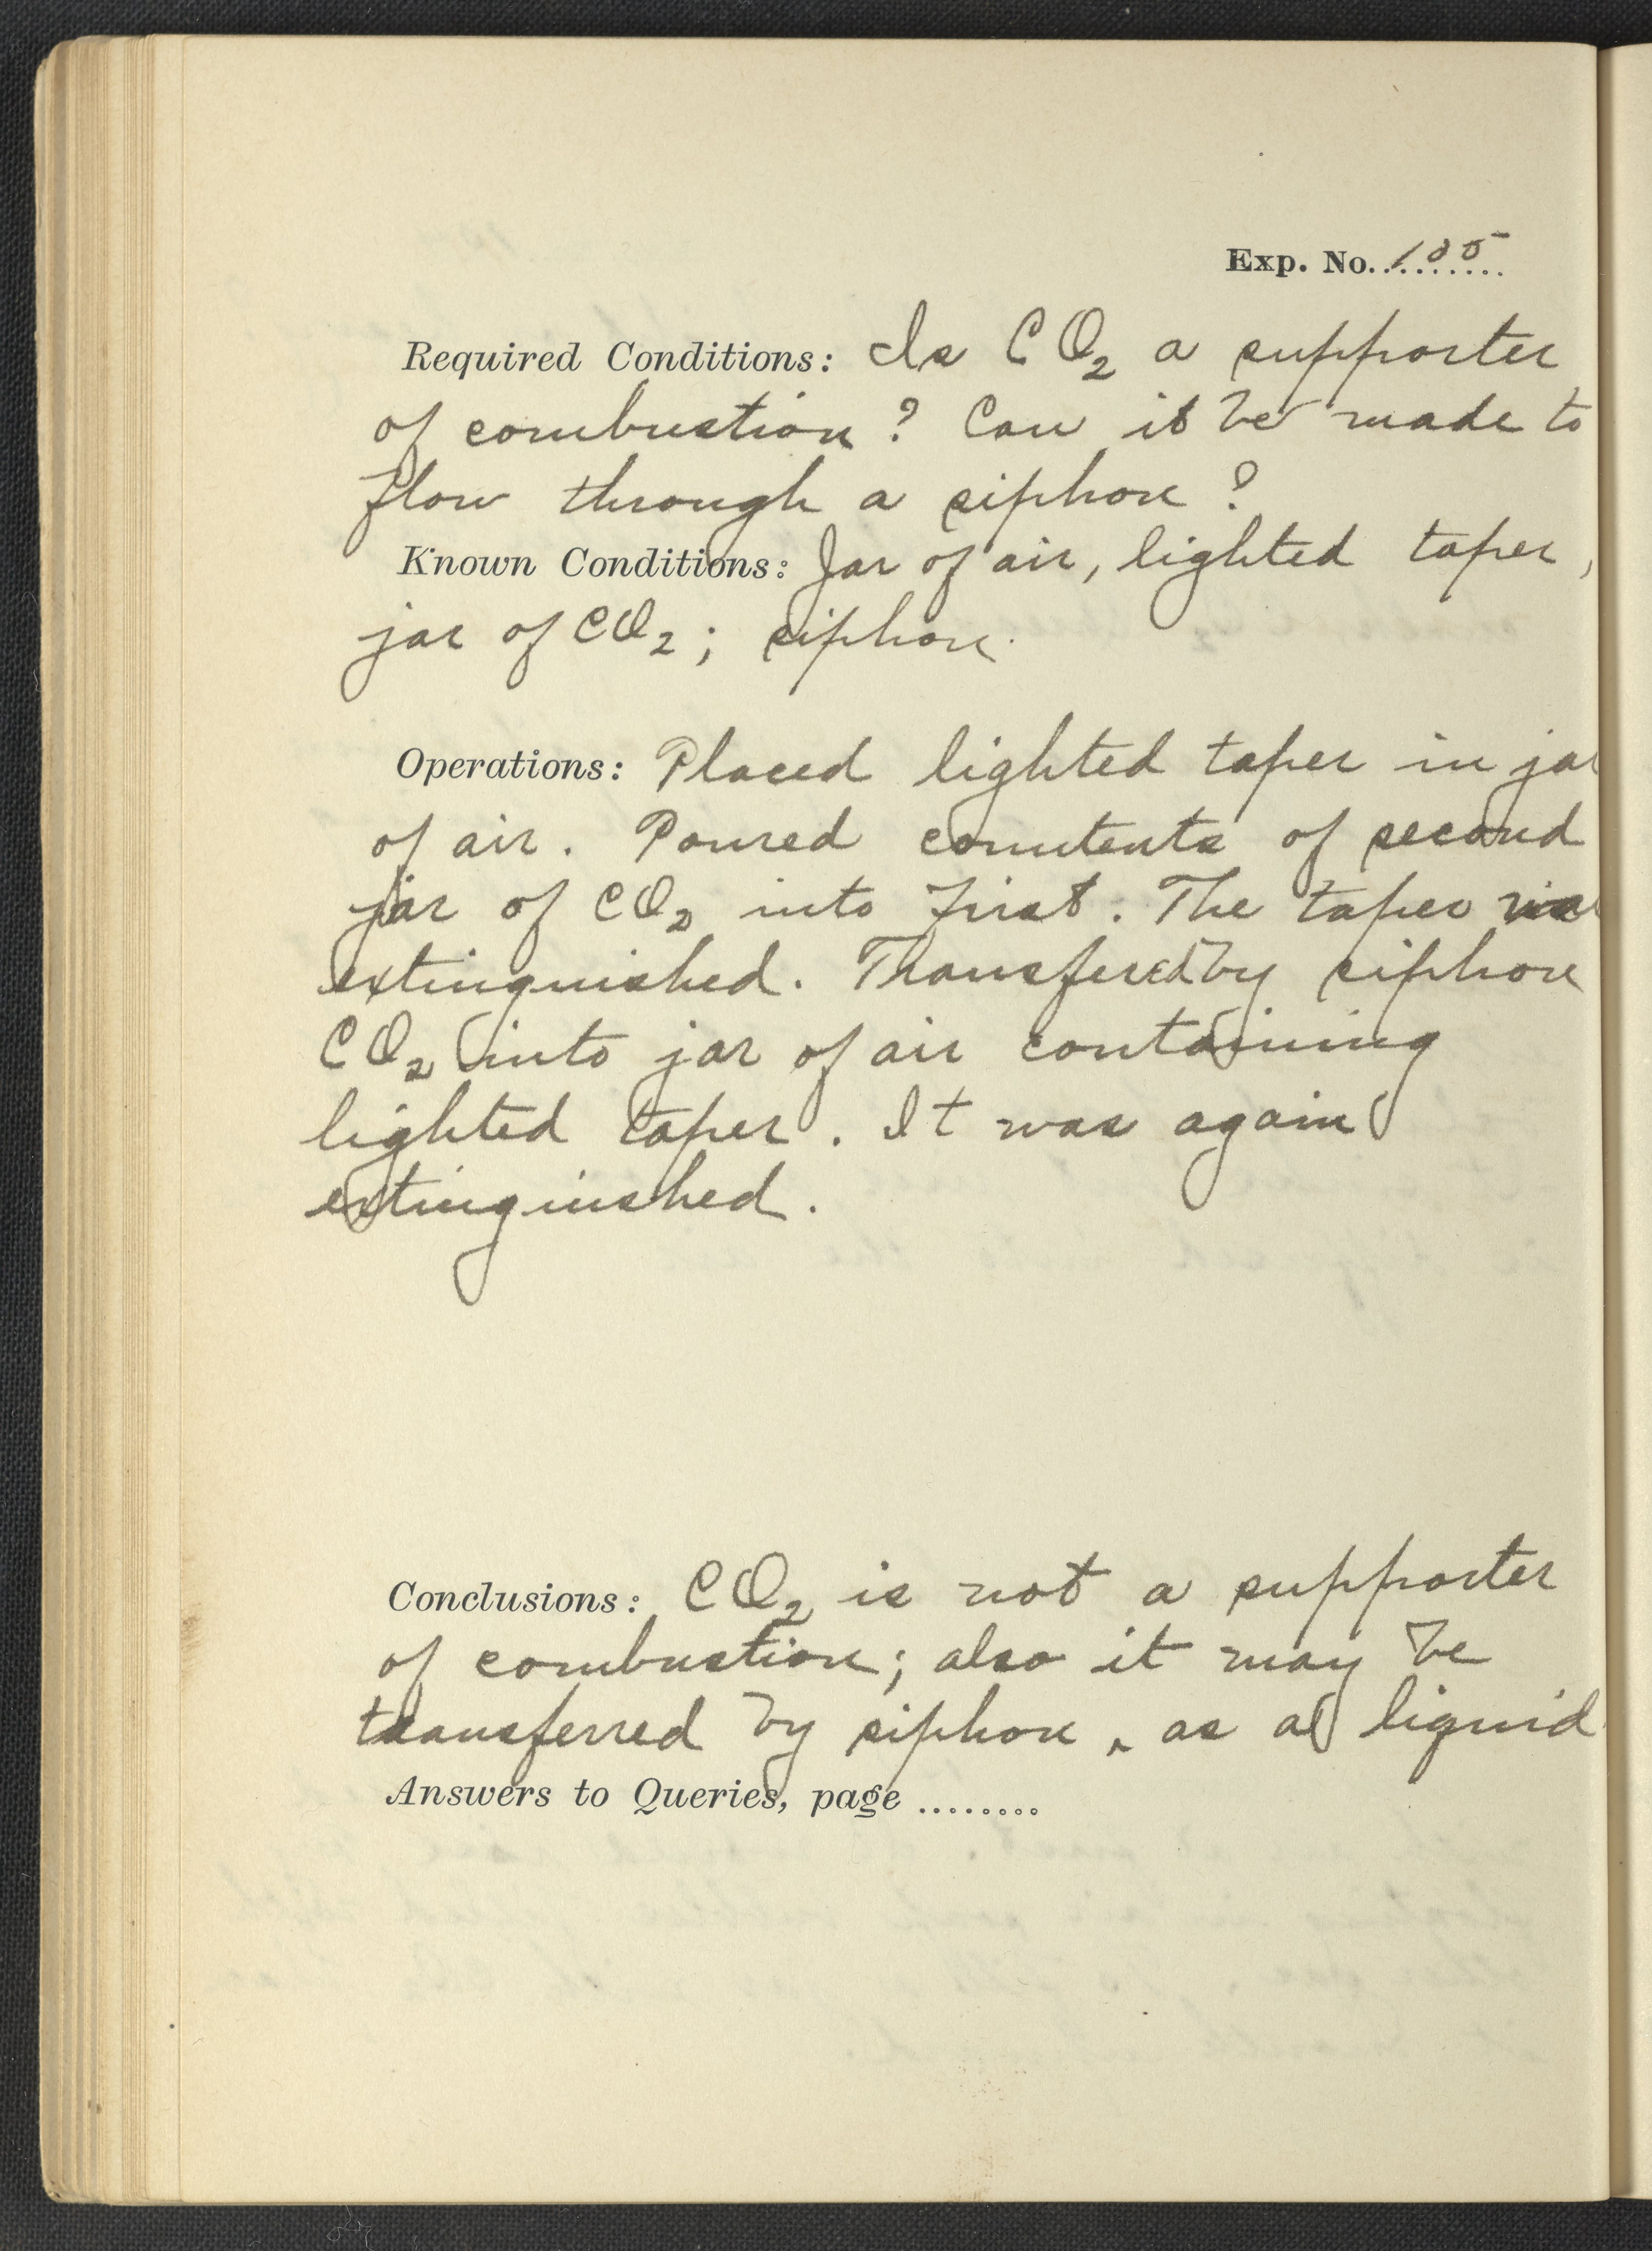 Exp. No. 105
Required Conditions: Is CO₂ a supporter
of combustion? Can it be made to
flow through a siphon?
Known Conditions: Jar of air, lighted taper,
jar of CO₂; siphon.
Operations: Placed lighted taper in jar
of air. Poured comntents of second
jar of CO₂ into first. The taper was
extinguished. Transfered by siphon
CO₂ into jar of air containing
lighted taper. It was again
extinguished.
Conclusions: CO₂ is not a supporter
of combustion; also it may be
transferred by siphon, as a liquid
Answers to Queries, page ........